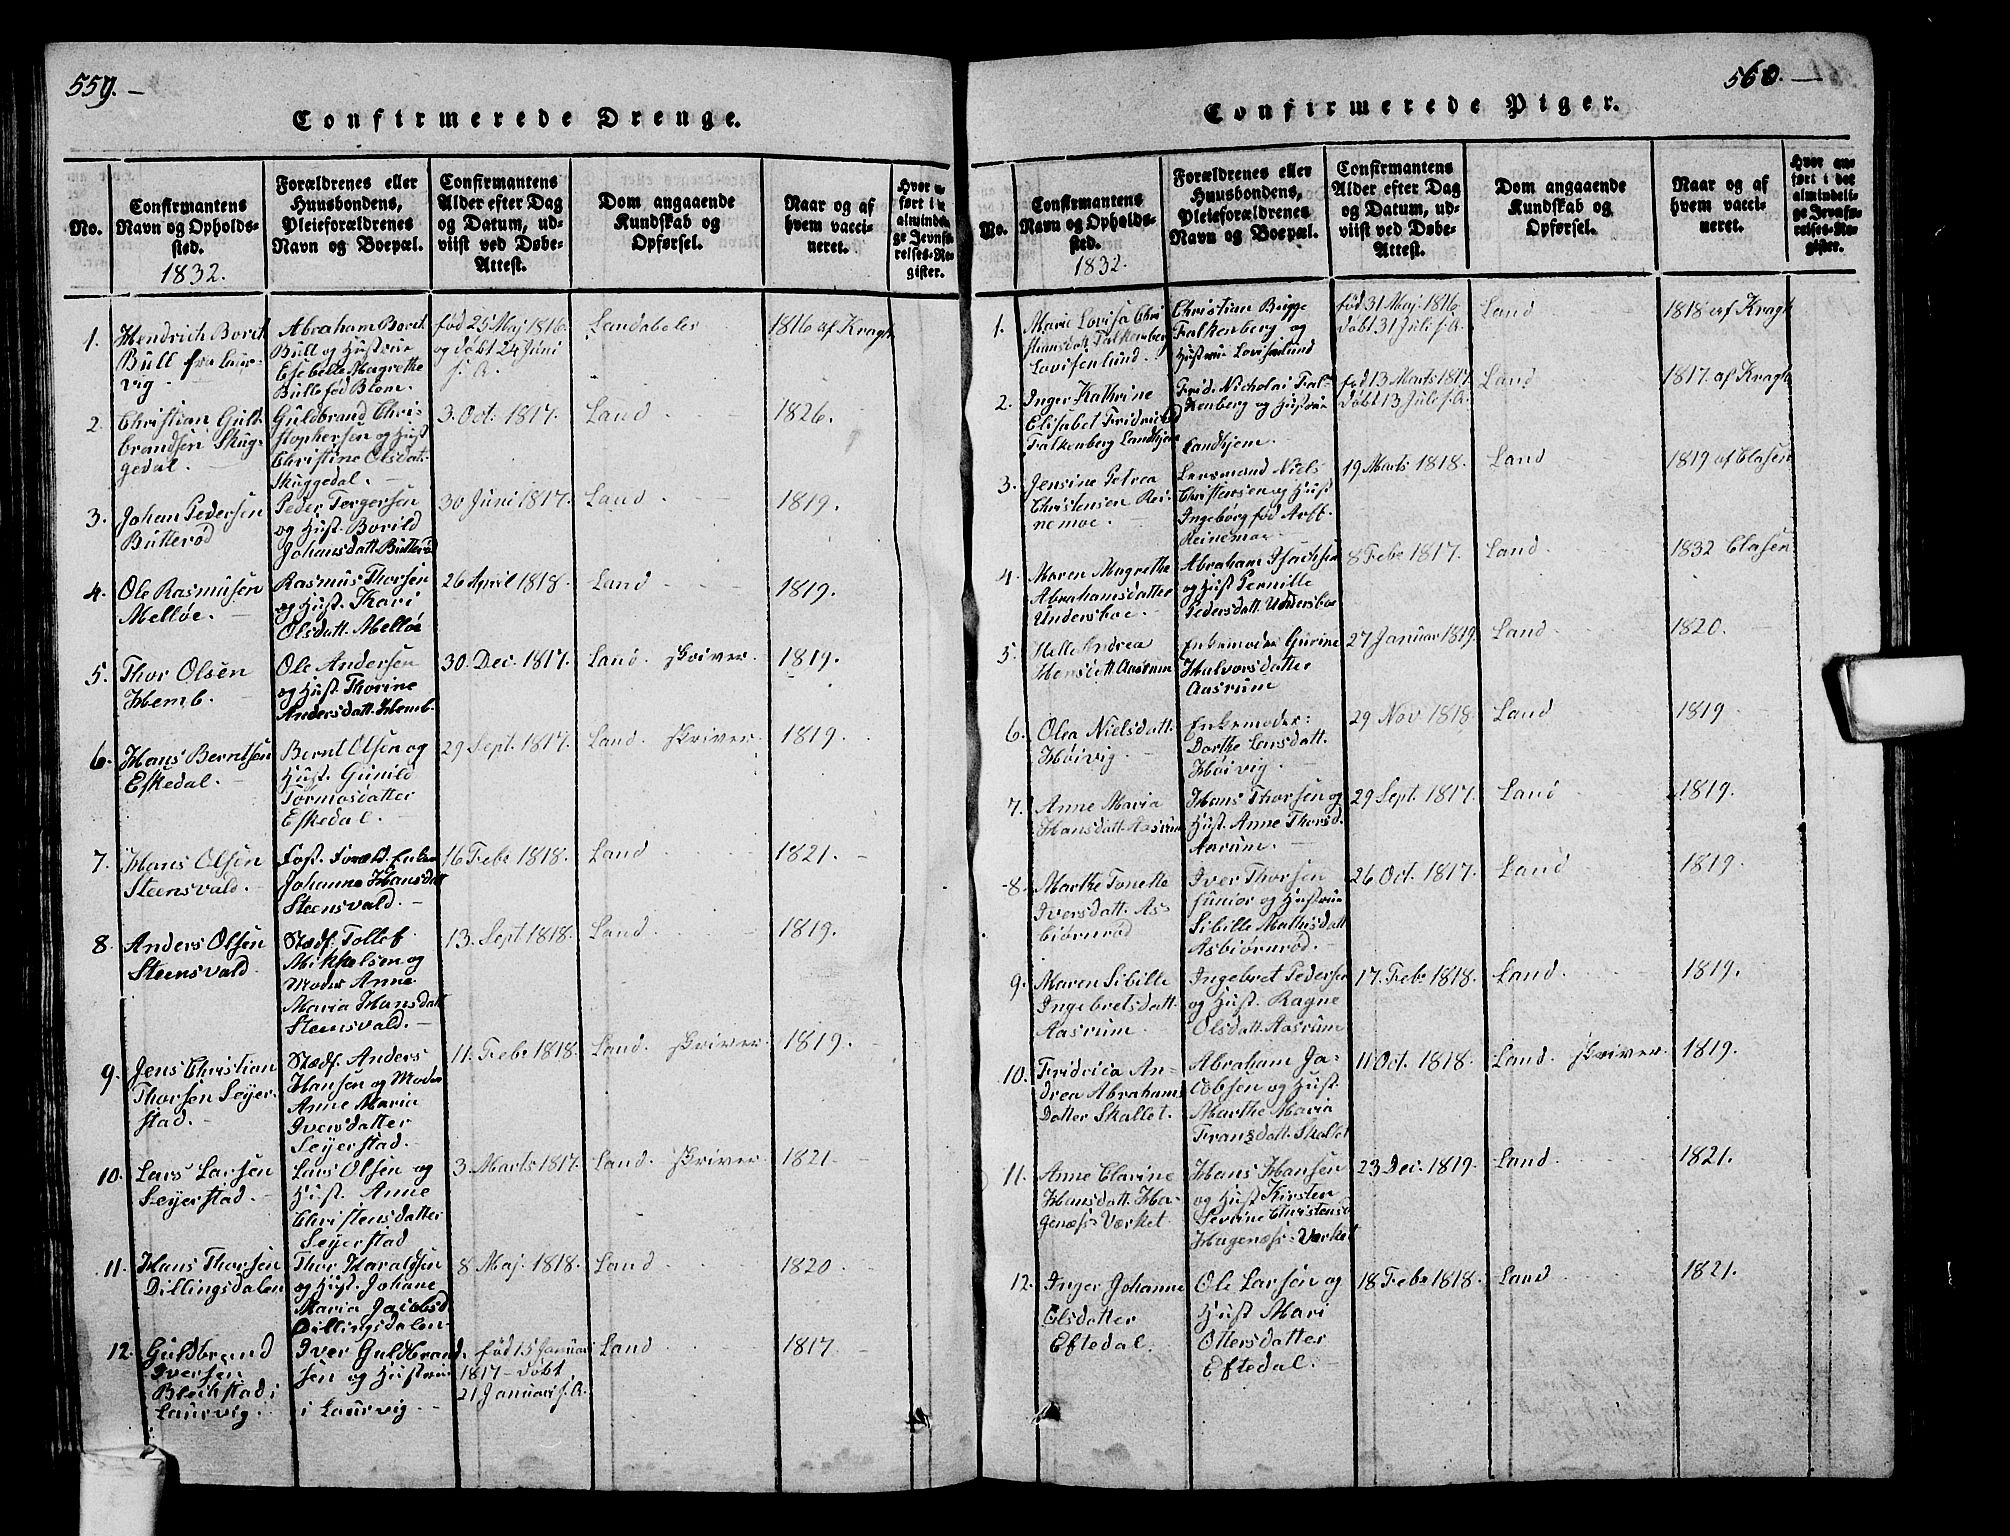 559.
Confirmerede Drenge.
No.
Confirmantens
Navn og Opholds-
sted.
1832.
Forældrenes eller
Huusbondens,
Pleieforældrenes
Navn og Boepæl.
Confirmantens
Alder efter Dag
og Datum, ud-
viist ved Døbe-
Attest.
Dom angaaende
Kundskab og
Opførsel.
Naar og af
hvem vacci-
neret.
Hvor an-
ført i det
almindeli-
ge Jevnfø-
relses-Re-
gister.
1.
Hendrich Boret
Bull fra Laur-
vig.
Abraham Boret
Bull og Hustrue
Margrethe
Bulle fød Blom.
fød 25 Maj 1816.
og døbt 24 Juni
s. A.
1816 af Kragh
2.
Christian Guld-
brandsen Skug-
gedal.
Guldbrand Chri-
stophersen og Hust.
Christine Olsdat.
Skuggedal.
3. Oct. 1817.
Land.
1826.
3.
Johan Pedersen
Butterød
Peder Torgersen
og Hust. Borild
Johansdatt. Butterød
30 Juni 1817.
Land.
1819.
4.
Ole Rasmusen
Melløe.
Rasmus Thorsen
og Hust. Kari
Olsdatt. Melløe
26 April 1818.
Land
1819.
5.
Thor Olsen
Hemb.
Ole Andersen
og Hust. Thorine
Andersdatt. Hemb.
30. Dec. 1817.
Land. skriver.
1819.
6.
Hans Berntsen
Eskedal.
Bernt Olsen og
Hust. Gunild
Tormosdatter
Eskedal.
29 Sept. 1817.
Land. skriver.
1819.
7.
Hans Olsen
Steensvald.
Fost. Foræld.
Johanne Hansdatt
Steensvald.
16 Febr 1818.
Land
1821.
8.
Anders Olsen
Steensvald.
Stedf. Tollef
Mikkelsen og
Moder Anne
Maria Hansdatt
Steensvald.
13. Sept. 1818.
Land.
1819.
9.
Jens Christian
Thorsen Seyer-
stad.
Stedf. Anders
Hansen og Moder
Anne Maria
Iversdatter
Seyerstad.
11. Febr 1818.
Land. skriver.
1819.
10.
Lars Larsen
Seyerstad.
Lars Olsen og
Hust. Anne
Christensdatter
Seyerstad
3 Marts 1817.
Land. skriver.
1821.
11.
Hans Thorsen
Dillingsdalen
Thor Haraldsen
og Hust. Johane
Maria Jacobsd.
Dillingsdalen
8 Maj. 1818.
Land
1820
12.
Guldbrand
Iversen
i
Laurvig.
Iver Guldbrand-
sen og Hustrue
i Laurvig.
fød 15 Januar
1817 – døbt
21 Januari s. A.
Land
1817.
560.
Confirmerede Piger.
No.
Confirmantens
Navn og Opholds-
sted.
1832.
Forældrenes eller
Huusbondens,
Pleieforældrenes
Navn og Boepæl.
Confirmantens
Alder efter Dag
og Datum, ud-
viist ved Døbe-
Attest.
Dom angaaende
Kundskab og
Opførsel.
Naar og af
hvem vacci-
neret.
Hvor an-
ført i det
almindeli-
ge Jevnfø-
relses-Re-
gister.
1.
Marie Lovisa Chri
stiansdatt. Falkenberg
Lovisenlund.
Christian Brigge
Falkenberg og
Hustrue Lovisenlund
fød 31 Maj 1816
døbt 31 Jule s. A.
Land
1818 af Kragh
2.
Inger Kathrine
Elisabet Fridricha
Falkenberg Landhjem
Frid. Nicholai Fal-
kenberg og Hustrue
Landhjem.
fød 13 Marts 1817.
døbt 13 Jule s. A.
Land
1817. af Kragh
3.
Jensine Petrea
Christensen Rei-
nemoe.
Lensmand Niels
Christensen og Hust
Ingeborg fød
Reinemoe.
19 Marts 1818.
Land
1819 af Clasen
4.
Maren Magrethe
Abrahamsdatter
Undersboe.
Abraham Isachsen
og Hust. Pernille
Pedersdatt. Undersboe
8 Febr 1817.
Land
1832 Clasen
5.
Helle Andrea
Hansdatt. Aasrum
Enkemoder Gurine
Halvorsdatter
Aasrum
27 Januar 1819.
Land
1820.
6.
Olea Nielsdatt.
Høivig.
Enkemoder:
Dorthe Lensdatt.
Høivig.
29 Nov 1818.
Land
1819
7.
Anne Maria
Hansdatt. Aasrum
Hans Thorsen og
Hust. Anne Thorsd.
Aasrum.
29 Sept. 1817.
Land
1819.
8.
Marthe Tonette
Iversdatt. As-
biørnrød
Iver Thorsen
junior og Hustrue
Sibille Mathisdatt
Asbiørnrød.
26 Oct. 1817.
Land
1819.
9.
Maren Sibille
Ingebretsdatt.
Aasrum
Ingebret Pedersen
og Hust. Ragne
Olsdatt. Aasrum
17. Febr 1818.
Land.
1819.
10.
Fridrica An-
drea Abrahams
Datter Skallet.
Abraham Ja-
cobsen og Hust.
Marthe Maria
Fransdatt. Skallet
11 Oct. 1818.
Land. skriver.
1819.
11.
Anne Clarine
Hansdatt. Ha-
genæss-Værket.
Hans Hansen
og Hust Kirsten
Severine Christensd
Hagenæss-Værket
23 Dec. 1819.
Land
1821.
12.
Inger Johanne
Olsdatter
Eftedal.
Ole Larsen og
Hust Mari
Ottersdatter
Eftedal.
18 Febr 1818.
Land
1821.